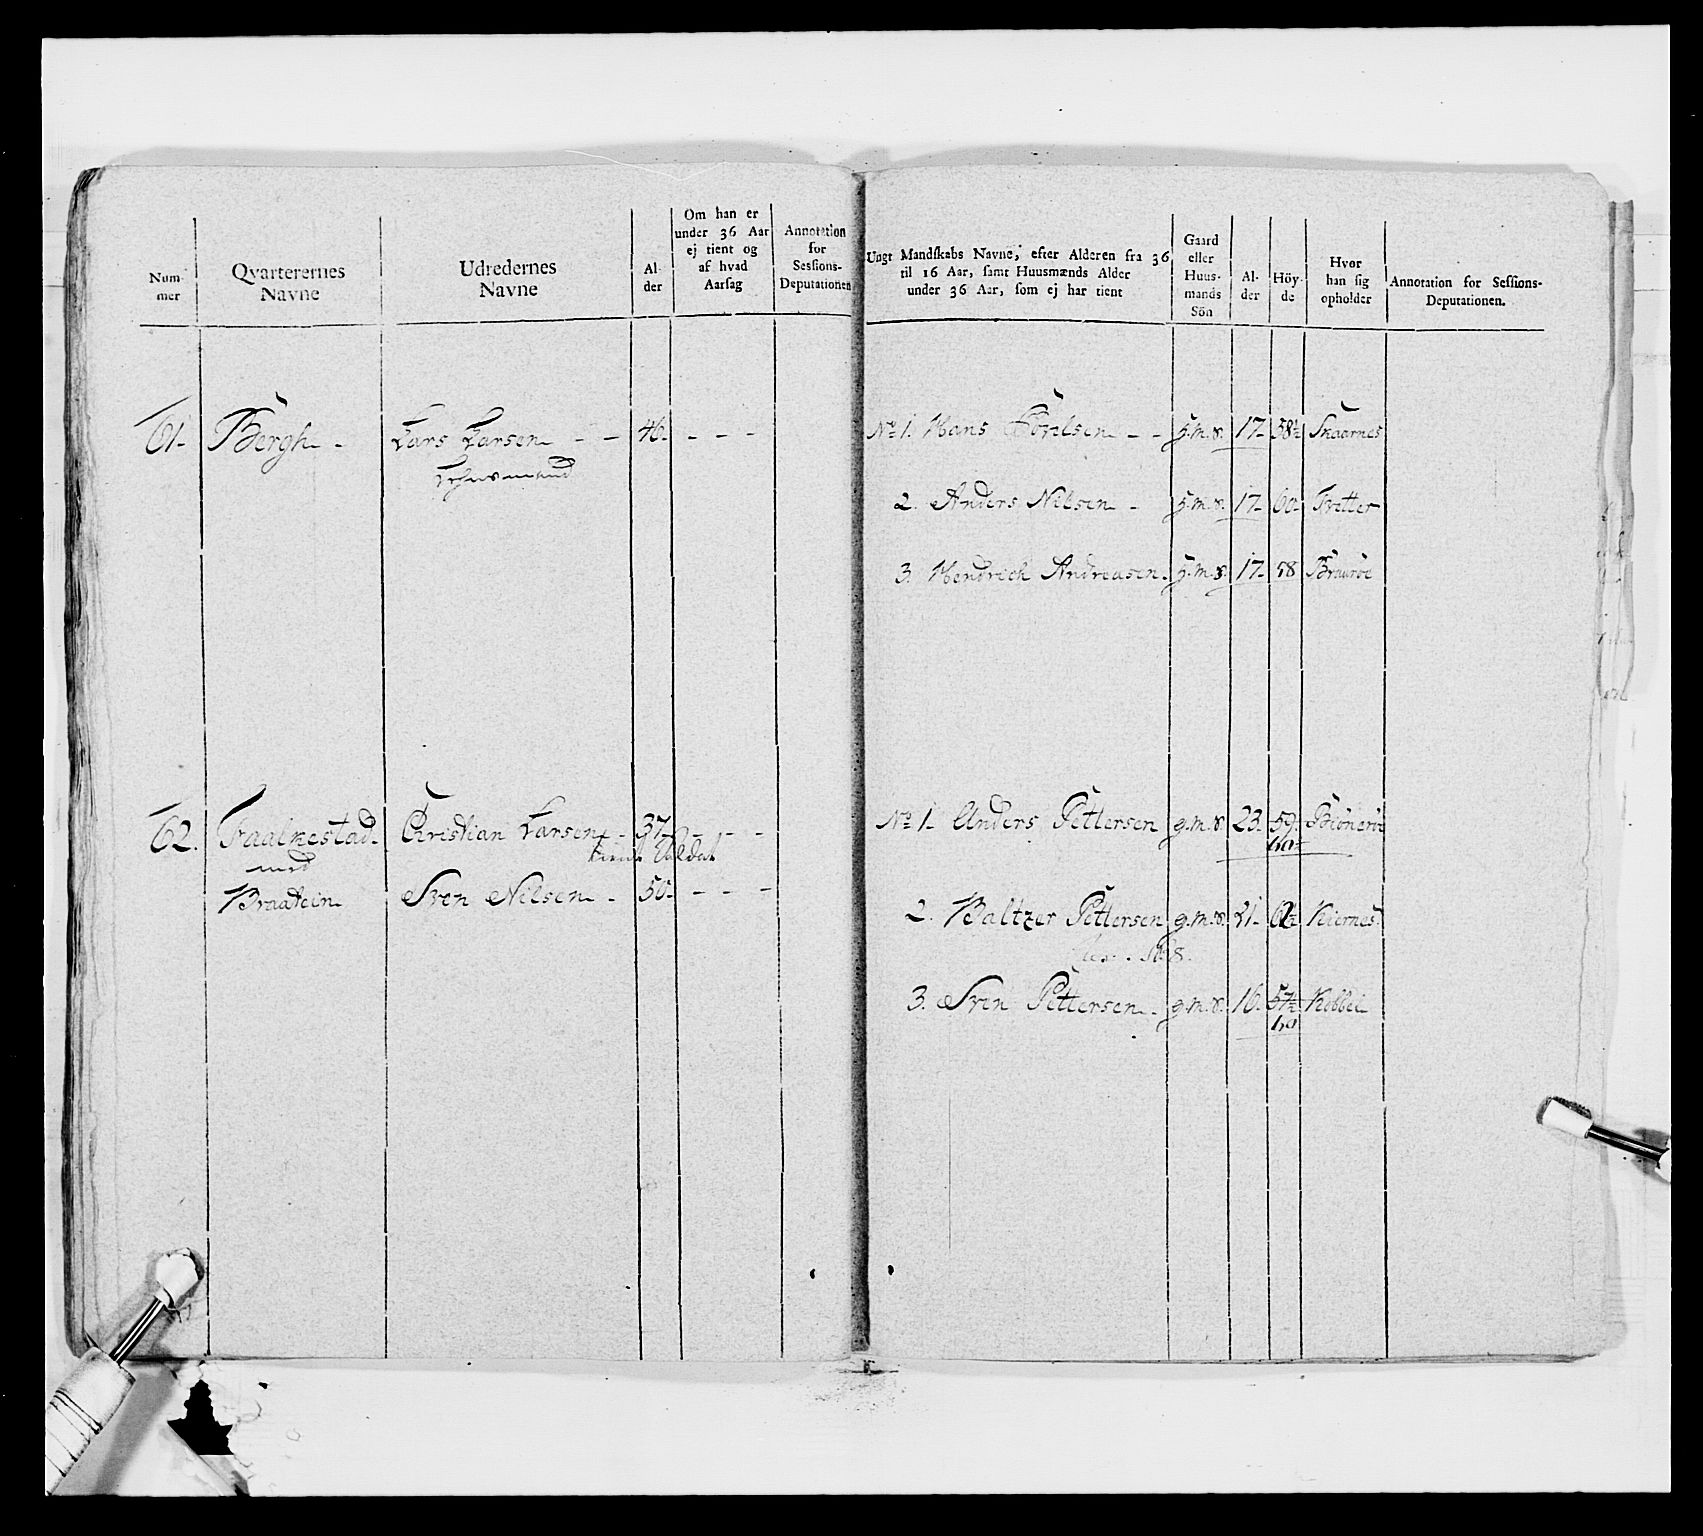 Num-
mer
Qvarterernes
Navne
Udredernes
Navne
Al-
der
Om han er
under 36 Aar
ej tient og
af hvad
Aarsag
Annotation
for
Sessions-
Deputationen
61- Bergh - Lars Larsen - - 46- - - -
62. Faalkestad- Christian Larsen - 37- - - -
med
Braatein Sven Nilsen - 50- - - -
Ungt Mandskabs Navne, efter Alderen fra 36
til 16 Aar, samt Huusmænds Alder
under 36 Aar, som ej har tient
Gaard
eller
Huus-
mands
Sön
Al-
der
Höy-
de
Hvor
han sig
opholder
Annotation for Sessions-
Deputationen.
No 1. Hans - - 17- 58½ Skaarnes
2. Anders Nilsen - 17- 60- Tvetter
3. Hendrich Andreasen. 17- 58
No 1- Anders Pettersen g.m.s. 23- 59-
60
2. Baltzer Pettersen g.m.s. 21- Kiernes
3. Sven Pettersen - g.m.s. 16- 57½ Kobbel
60